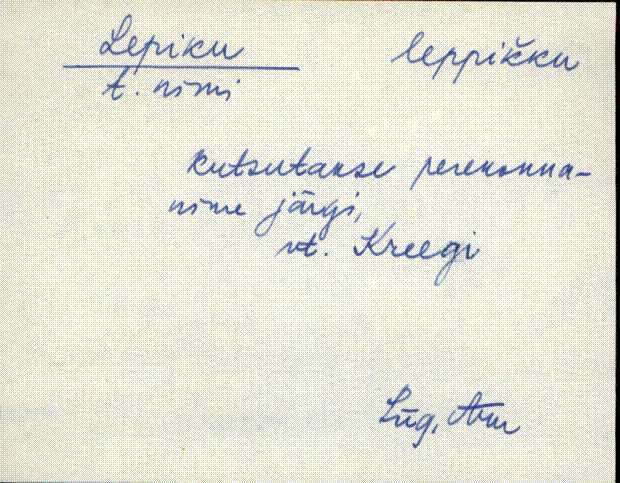 Lepiku leppikku
t. nimi
kutsutakse perekonna-
nime järgi,
vt. Kreegi
Lüg,